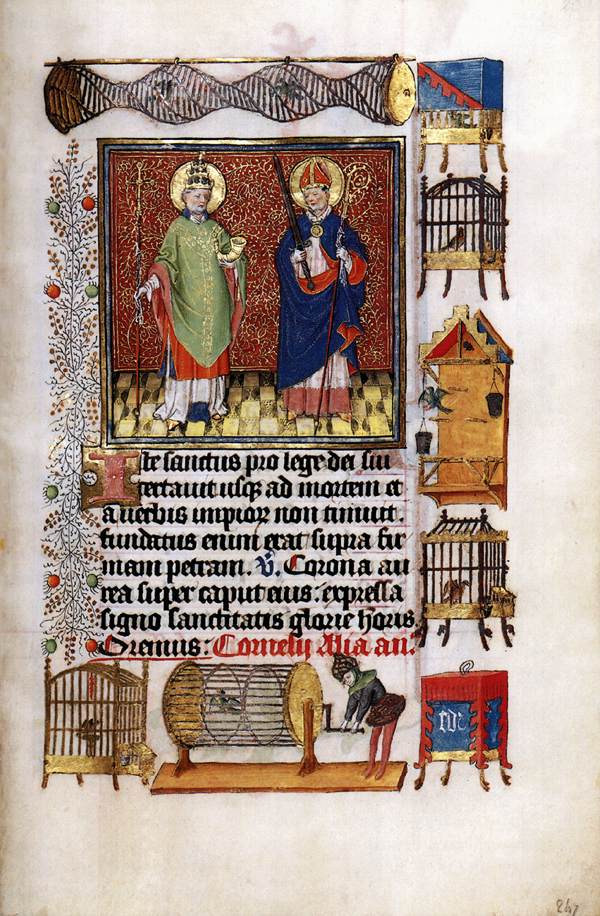 Iste sanctus pro lege dei sui
certauit usqꝫ ad mortem et
a uerbis impioꝝ non timuit.
fundatus enim erat supra fir
mam petram. V̷. Corona au
rea super caput eius: expressa
signo sanctitatis glorie honoris
Oremus: Cornelij Alia an̄.
247